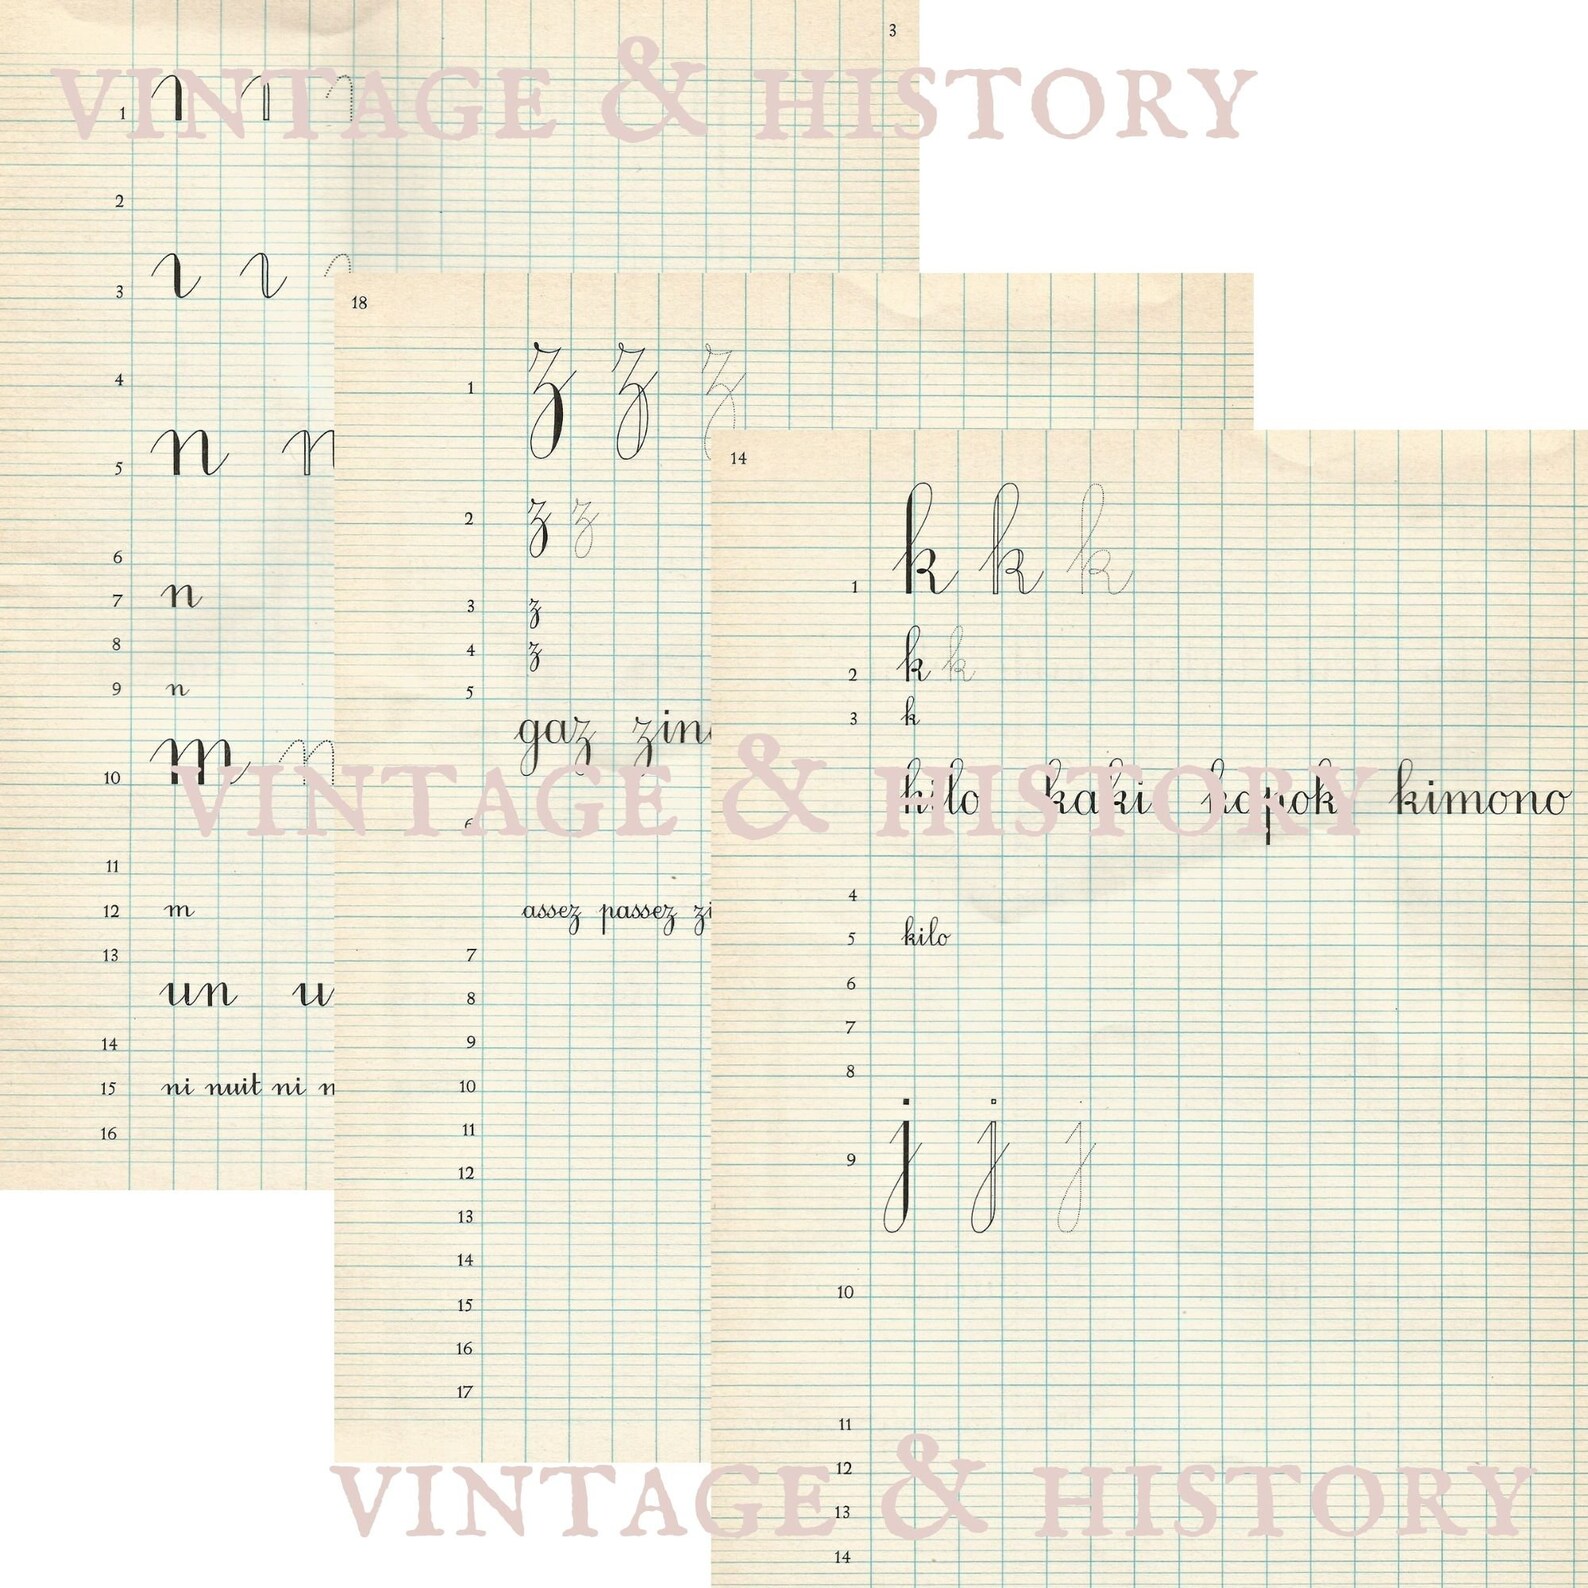 3
VINTAGE & HISTORY
1
2
3
ı ı
4
5
n n
6
7
n
8
9
n
10
m
11
12
m
13
un
14
15
ni nuit ni
16
18
1
z z z
2
z z
3
z
4
z
5
gaz
6
assez passez
7
8
9
10
11
12
13
14
15
16
17
14
1
k k k
2
k k
3
k
VINTAGE & HISTORY
kilo kaki kapok kimono
4
5
kilo
6
7
8
9
j j j
10
11
12
13
14
VINTAGE & HISTORY